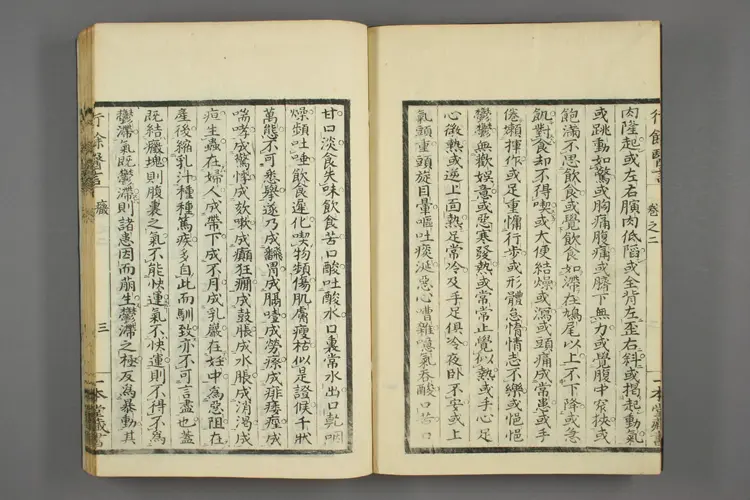 行餘醫言 卷之二
肉隆起或左右腹肉低陷或全背左歪右斜或揭起動氣
或跳動如驚或胸痛腹痛或臍下無力或覺腹中窄狹或
飽滿不思飲食或覺飲食如滯在鳩尾以上不下降或急
飢對食却不得喫或大便結燥或瀉或頭痛成常患或手
倦懶揮作或足重慵行步或形體怠惰情志不樂或悒悒
鬱鬱無歡娯意或惡寒發熱或常常止覺似熱或手心足
心微熱或逆上面熱足常冷及手足俱冷夜臥不安或上
氣頭重頭旋目暈嘔吐痰涎惡心嘈雜噫氣呑酸口苦口
甘口淡食失味飲食苦口酸吐酸水口裏常水出口乾咽
燥頻吐唾飲食遲化喫物頻傷肌膚瘦枯似是證候千狀
萬態不可悉擧遂乃成飜胃成膈噎成勞瘵成痱痿痙成
喘哮成驚悸成欬嗽成癲狂癇成鼓脹成水脹成消渴成
疸生蟲在婦人成帶下成不月成乳巖在妊中為惡阻在
產後縮乳汁種種篤疾多自此而馴致亦不可言盡也蓋
既結癥塊則腹裏之氣不能快運氣不快運則不得不為
鬱滯氣既鬱滯則諸恚因而萠生鬱滯之極反為暴動其
行餘醫言 癥 三
一本堂藏書